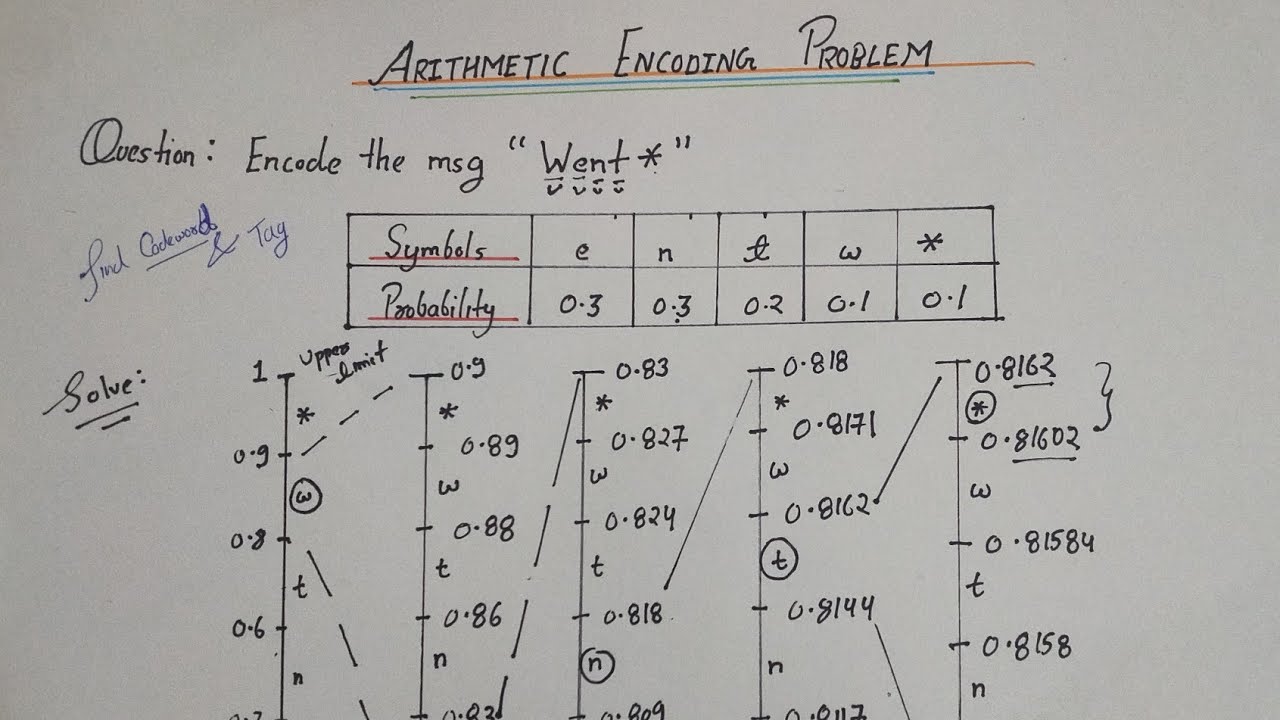 ARITHMETIC ENCODING PROBLEM
Question: Encode the msg "Went*"
find Codeword & Tag
Symbols e n t w *
Probability 0.3 0.3 0.2 0.1 0.1
Solve:
1 upper limit 0.9 0.83 0.818 0.8162
* * * * *
0.9 0.89 0.827 0.8171 0.81602
w w w w w
0.8 0.88 0.824 0.8162 0.81584
t t t t t
0.6 0.86 0.818 0.8144 0.8158
n n n n n
0.809 0.8117